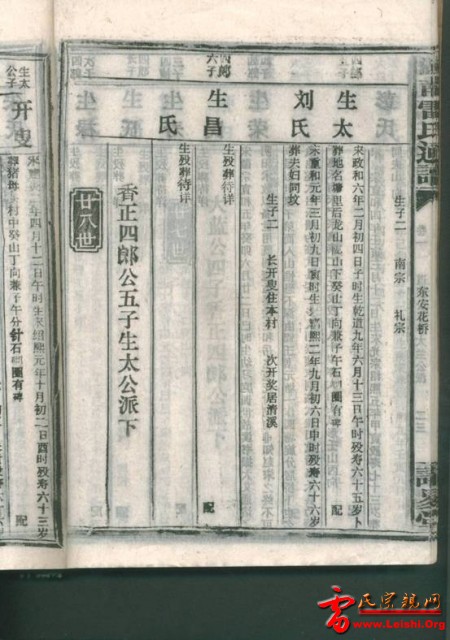 雷氏通譜
东安花桥
二三
生子二 南宗 礼宗
四郎
五子
生太
宋政和六年二月初四日子时生乾道九年六月十三日午时殁寿六十五岁卜
葬地名
里后龙山
山下癸山丁向兼子午石
圈有碑
配
刘氏
宋重和元年三月初九日寅时生
熙二年九月初六日申时殁寿六十六岁
葬夫妇同坟
生子二 长开叟住本村 次开奖居清溪
四郎
六子
生昌
生殁葬待详
配
氏
生殁葬待详
香正四郎公五子生太公派下
廿八世
生太
公子
开叟
年四月十二日午时生
绍熙元年十月初二日酉时殁寿六十三岁
葬猪
村中癸山丁向兼子午分针石
圈有碑
配
雷氏宗親网
www.Leishi.Org